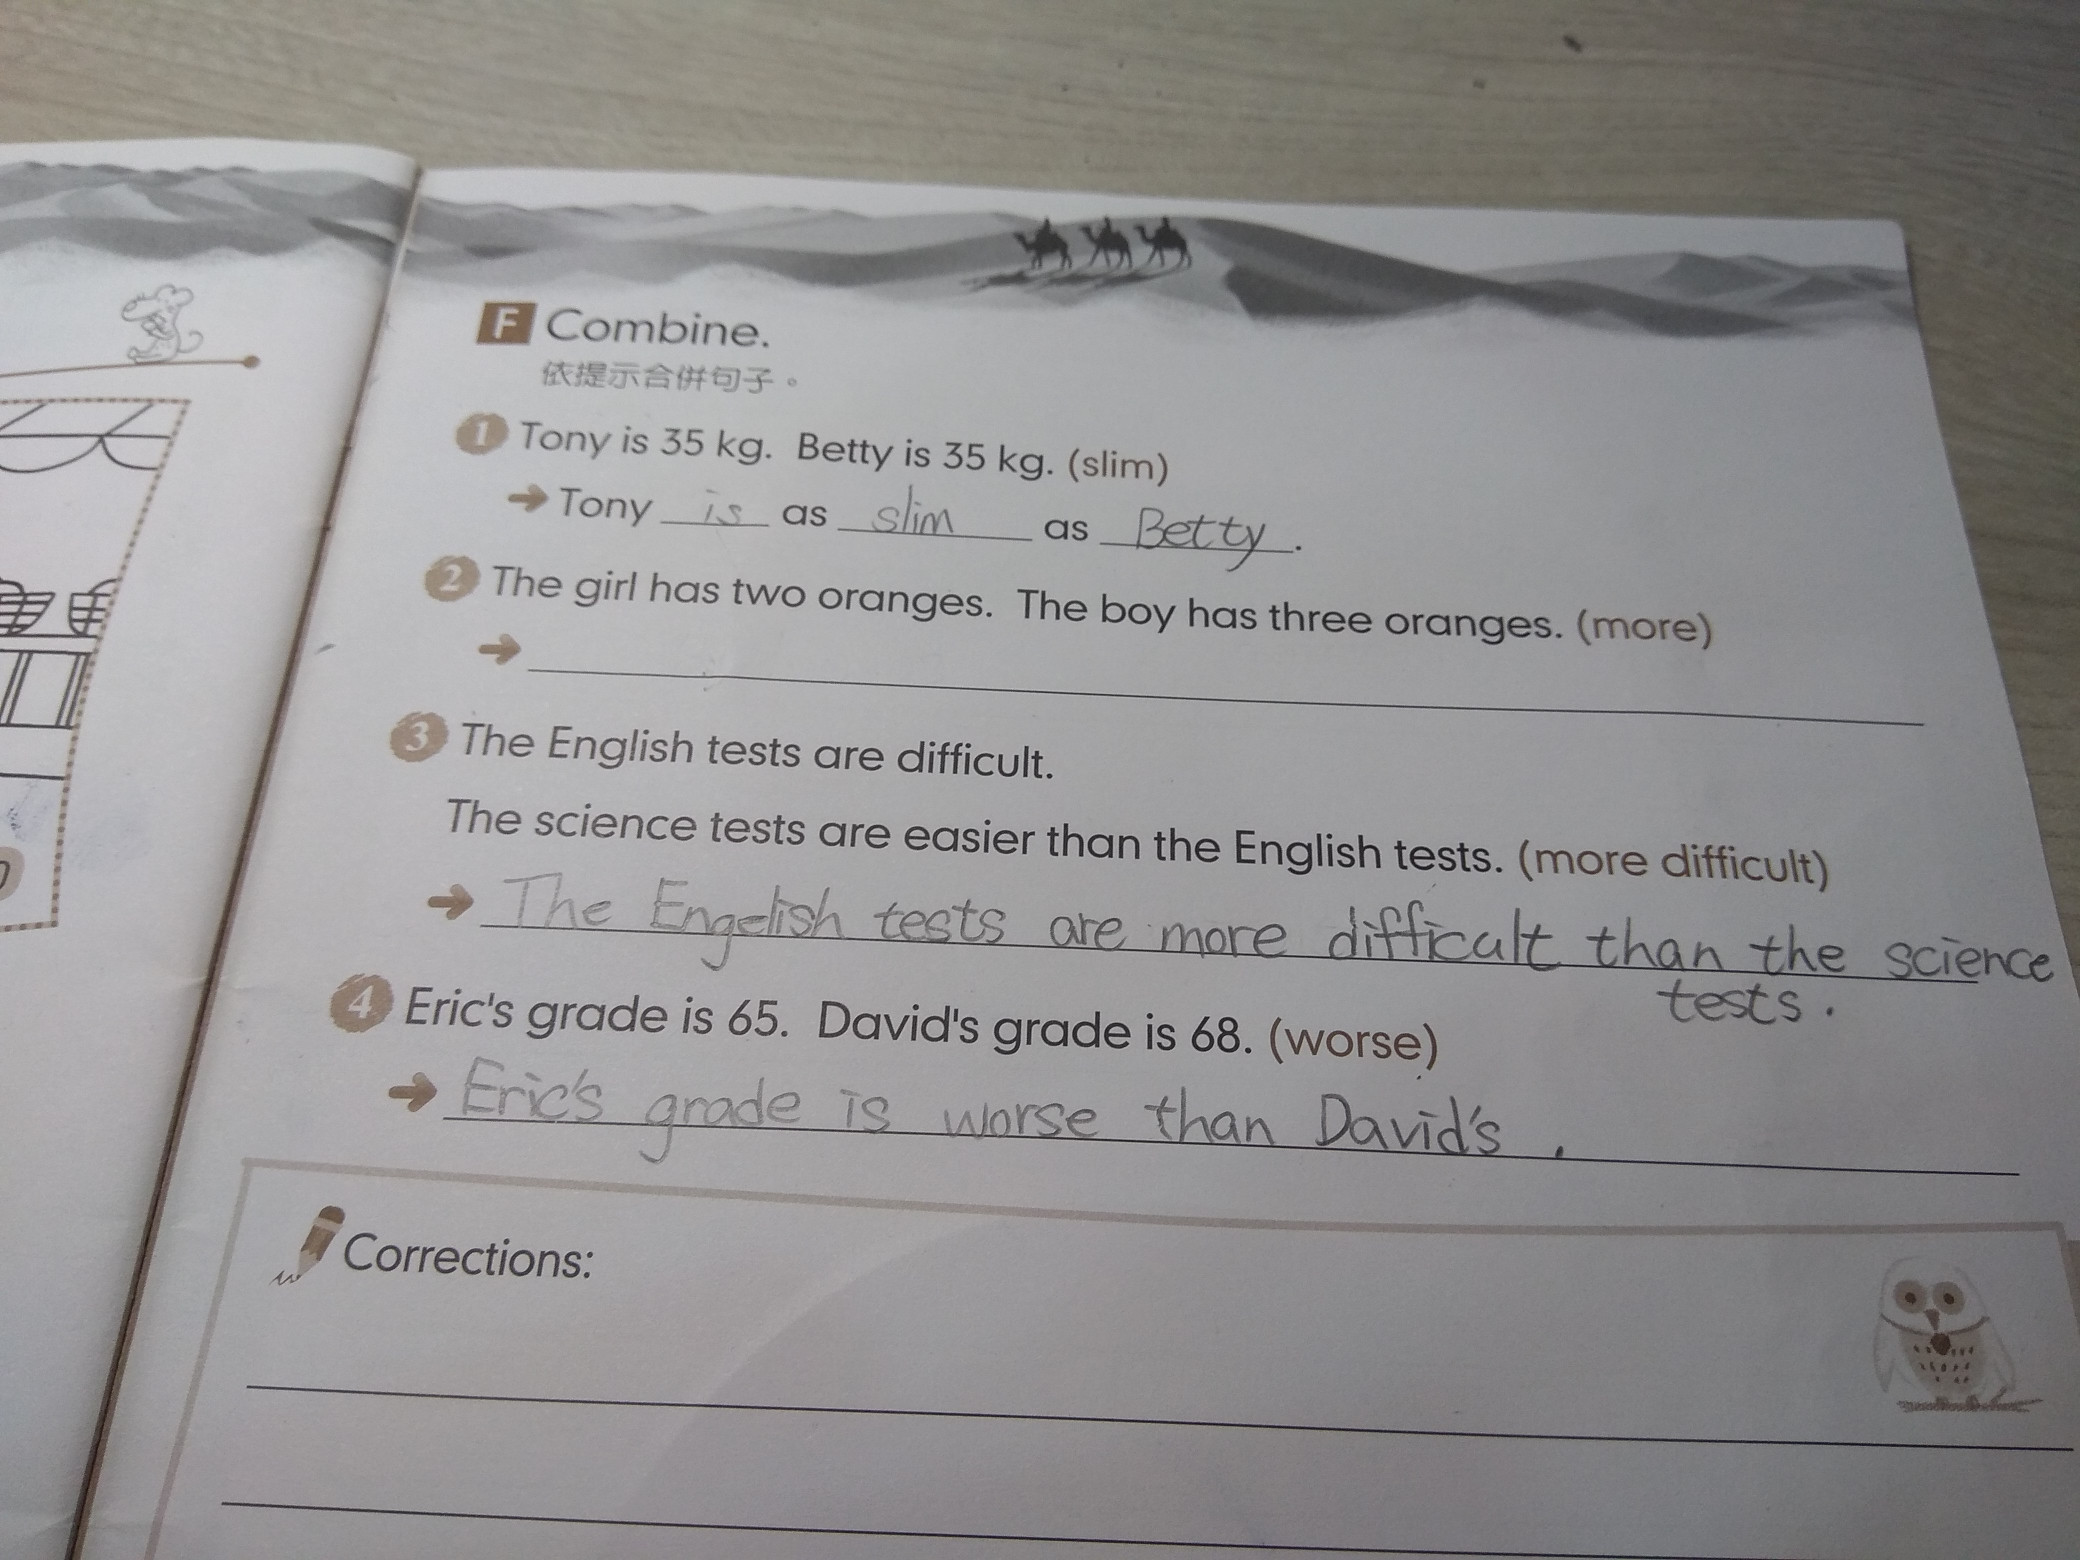 F Combine.
依提示合併句子。
1 Tony is 35 kg. Betty is 35 kg. (slim)
➔ Tony is as slim as Betty.
2 The girl has two oranges. The boy has three oranges. (more)
➔
3 The English tests are difficult.
The science tests are easier than the English tests. (more difficult)
➔ The Engelish tests are more difficult than the science
tests.
4 Eric's grade is 65. David's grade is 68. (worse)
➔ Eric's grade is worse than David's.
Corrections: